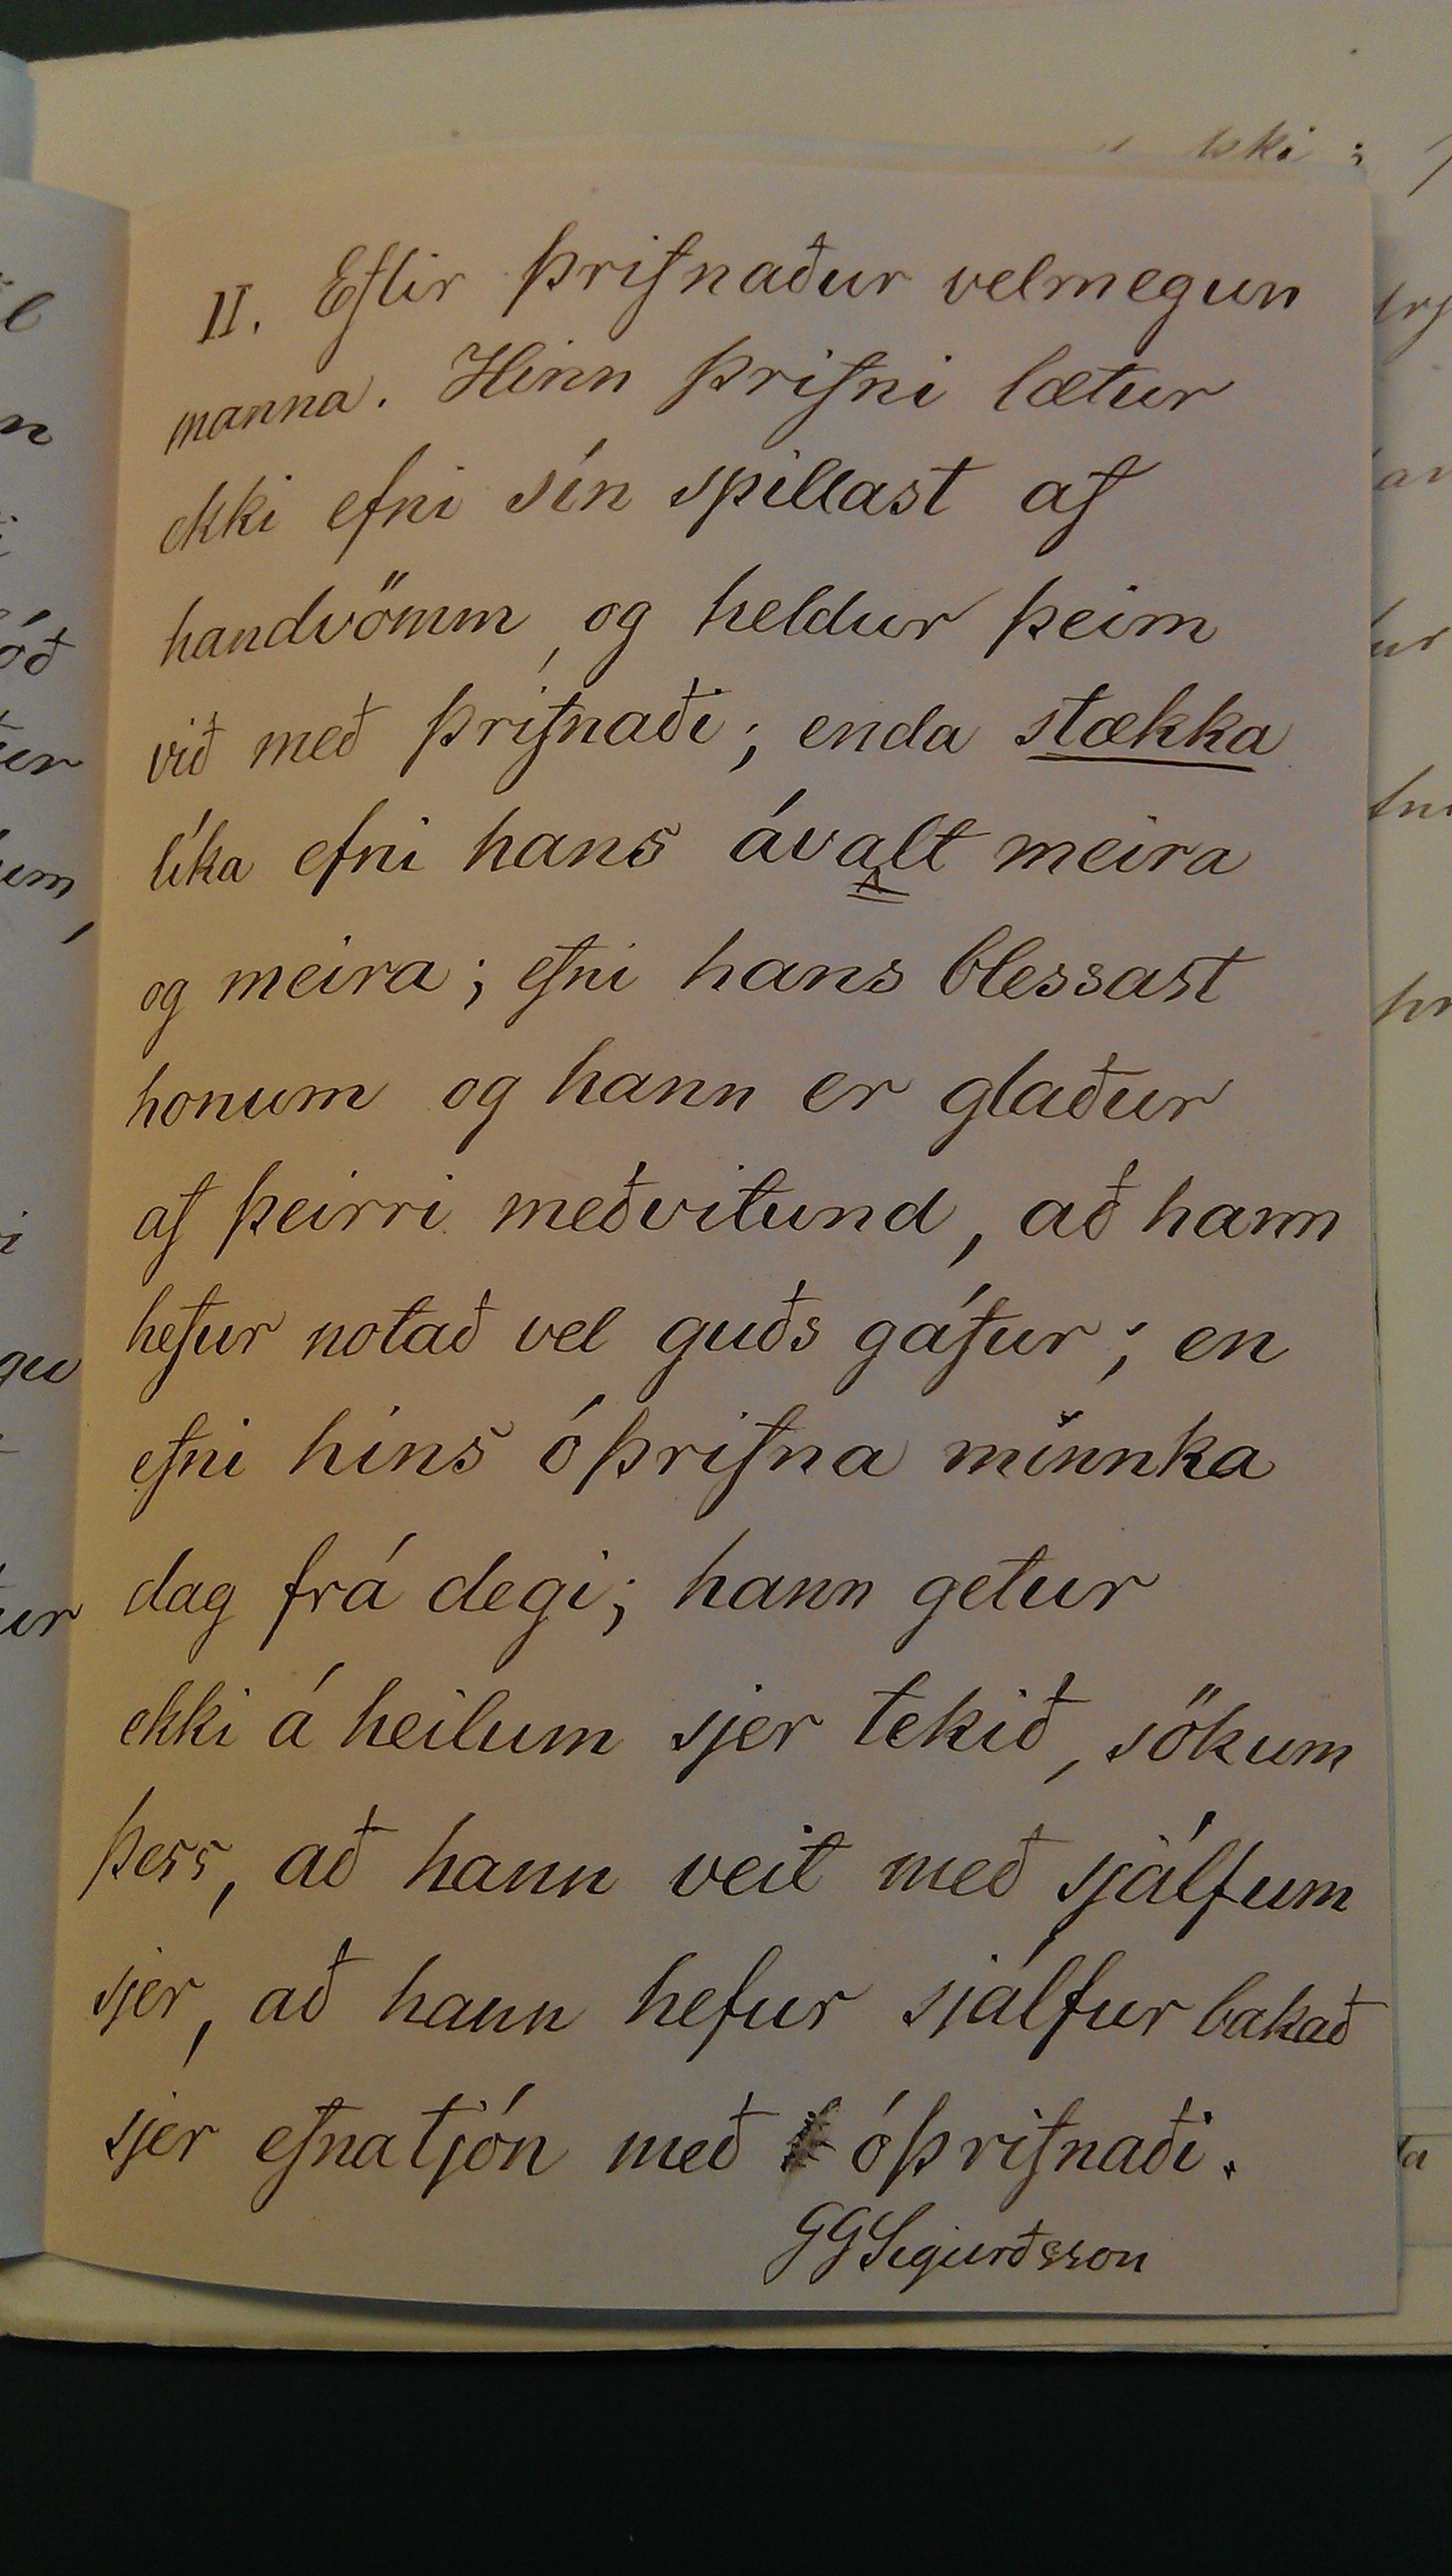 II. Eflir þrifnaður velmegun
manna. Hinn þrifni lætur
ekki efni sín spillast af
handvömm, og heldur þeim
við með þrifnaði; enda stækka
líka efni hans ávalt meira
og meira; efni hans blessast
honum og hann er glaður
af þeirri meðvitund, að hann
hefur notað vel guðs gáfur; en
efni hins óþrifna minnka
dag frá degi; hann getur
ekki á heilum sjer tekið, sökum
þess, að hann veit með sjálfum
sjer, að hann hefur sjálfur bakað
sjer efnatjón með óþrifnaði.
GGSigurðsson